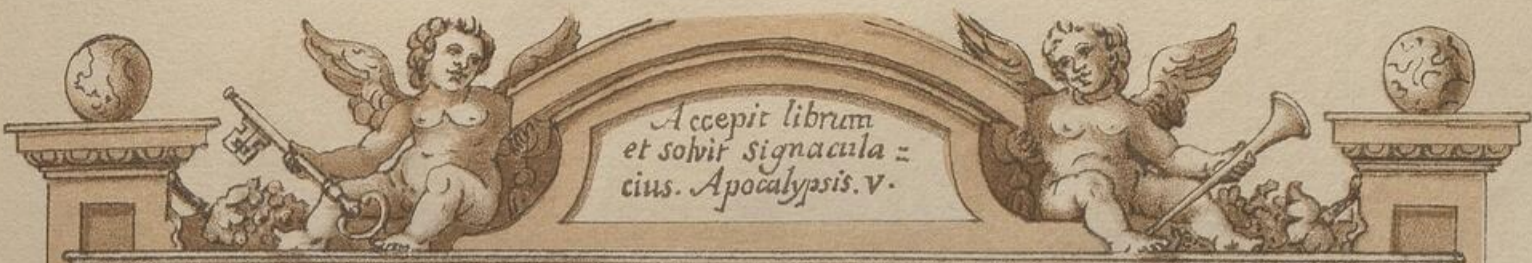 Accepit librum
et solvit signacula =
eius. Apocalypsis. v.